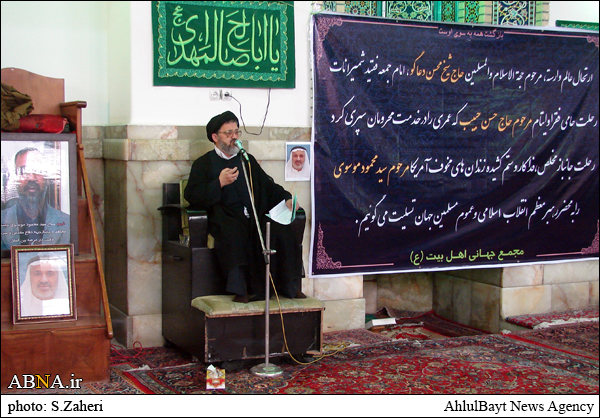 یا ابا صالح المهدی عج
بازگشت همه به سوی اوست
ارتحال عالم وارسته، مرحوم حجة الاسلام والمسلمین حاج شیخ محسن دعاگو، امام جمعه فقید شمیرانات
رحلت حامی فقرا و ایتام مرحوم حاج حسن حبیب که عمری را در خدمت محرومان سپری کرد
رحلت جانباز مخلص، فداکار و ستم کشیده زندان های مخوف آمریکا مرحوم سید محمود موسوی
را به محضر رهبر معظم انقلاب اسلامی و عموم مسلمین جهان تسلیت می گوئیم.
مجمع جهانی اهل بیت (ع)
ABNA.ir
photo: S.Zaheri
AhlulBayt News Agency